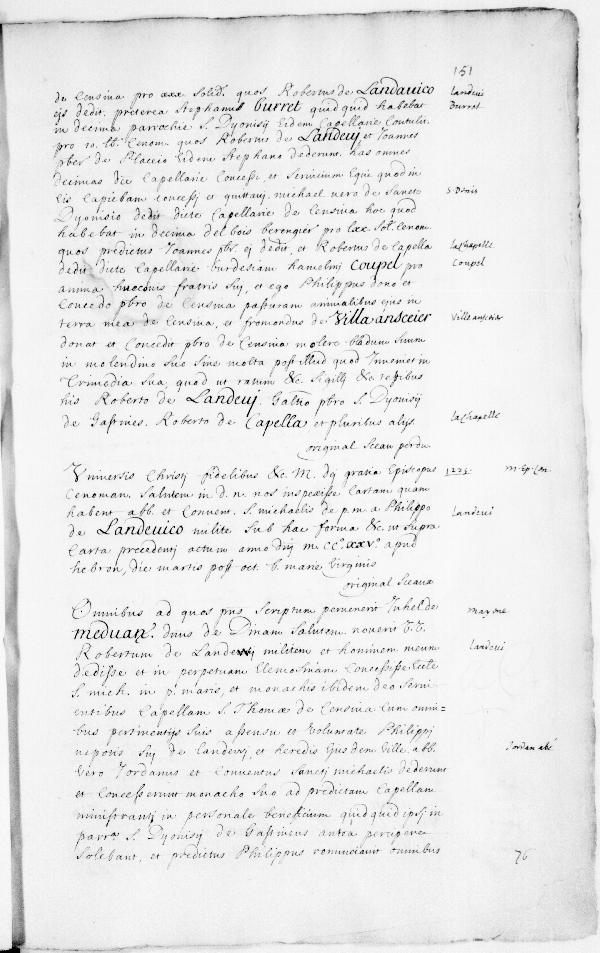 151
de Censiva pro xxx solid. quos Robertus de Landavico Landevi
ejs dedit. preterea Stephanus Burret quidquid habebat Burret
in decima parrochie S. Dyonisij Eidem Capellarie Contulit
pro 10. lb. Cenom. quos Robertus de Landevij et Joannes
pbr de Placeio Eidem Stephano dederunt. has omnes
decimas dte Capellarie Concessi, et Servicium Equi quod in
Eis Capiebam concessi et quittavi. michael vero de Sancto S. Denis
Dyonisio dedit dicte Capellarie de Censiva hoc quod
habebat in decima del bois berengier pro lxx. sol. Cenom.
quos predictus Joannes pbr ej dedit, et Robertus de Capella La chapelle
dedit dicte Capellarie burdesiam hamelinj Coupel pro Coupel
anima fratris Suj, et ego Philippus dono et
Concedo pbro de Censiva pasturam animalibus ejus in
terra mea de Censiva, et fromondus de Villa ansceier Ville ansceier
donat et Concedit pbro de Censiva molere bladum Suum
in molendino Suo Sine molta post illud quod Invenerit in
Trimodia Sua, quod ut ratum &c. Sigillj &c testibus
his Roberto de Landevij. pbro S. Dyonisij
de Gastines. Roberto de Capella et pluribus alijs. La chapelle
original Sceau perdu
Universis Christj fidelibus &c. M. dej gratia Episcopus 1225. M. Ep. Cen.
Cenoman. Salutem in d. n. nos inspexisse Cartam quam
habent abb. et Convent. S. michaelis de p. m. a Philippo
de Landevico milite Sub hac forma &c. ut Supra Landevi
Carta precedentj actum anno dnj m. CC. xxv. apud
hebron, die martis post oct. b. marie Virginis
original Sceaux
Omnibus ad quos pns Scriptum pervenerit Juhel de mayne
meduan. dnus de Dinam Salutem. noverit V. V.
Robertum de Landevij militem et hominem meum Landevi
dedisse et in perpetuam Elemosinam Concessisse Eccle
S. mich. in p. maris, et monachis ibidem deo Servi-
entibus Capellam S. Thomæ de Censiva Cum omni=
bus pertinentijs Suis assensu et Voluntate Philippj
nepotis Suj de Landevij, et heredis Ejusdem Ville. abb. Jordan abb.
Vero Jordanus et Conventus Sanctj michaelis dederunt
et Concesserunt monacho Suo ad predictam Capellam
ministrantj in personale beneficium quidquid ipsj in
parr. S. Dyonisij de Gastineus antea percipere
Solebant, et predictus Philippus renunciavit Omnibus
76